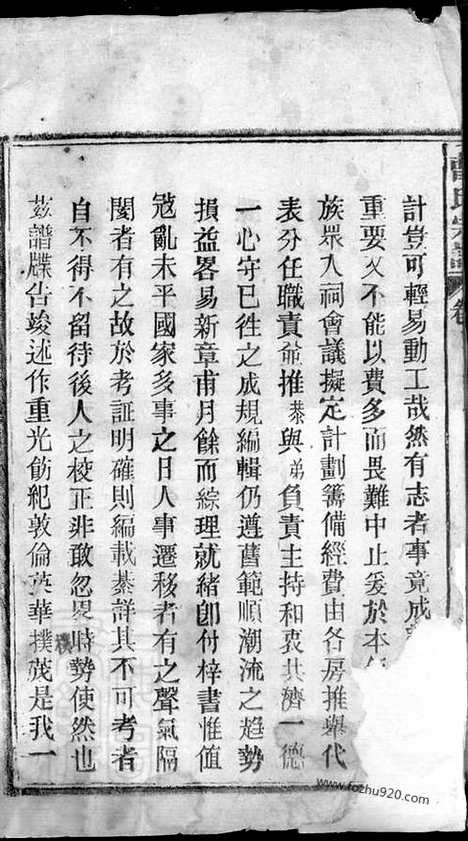 氏宗譜
計豈可輕易動工哉然有志者事竟成
重要又不能以費多而畏難中止爰於本
族眾入祠會議擬定計劃籌備經費由各房推舉代
表分任職責僉推棻與弟負責主持和衷共濟一德
一心守已徃之成規編輯仍遵舊範順潮流之趋勢
損益畧易新章甫月餘而綜理就緒卽付梓書惟值
寇亂未平國家多事之日人事遷移者有之聲氣隔
閡者有之故於考証明確則編載綦詳其不可考者
自不得不留待後人之校正非敢忽畧時勢使然也
茲譜牒告竣述作重光飭紀敦倫英華樸茂是我一
樸
www.fozhu920.com